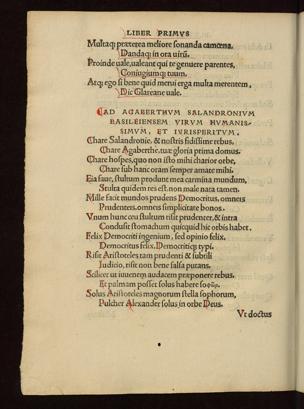 LIBER PRIMVS
Multaq; præterea meliore sonanda camœna.
Dandaq; in ora uirũ.
Proinde uale, ualeant qui te genuere parentes,
Coniugiumq; tuum.
Atq; ego si bene quid merui erga multa merentem,
Dic Glareane uale.
AD AGABERTHVM SALANDRONIVM
BASILEIENSEM VIRVM HVMANIS-
SIMVM, ET IVRISPERITVM,
Chare Salandronie, & nostris fidissime rebus,
Chare Agaberthe, tuæ gloria prima domus.
Chare hospes, quo non isto mihi charior orbe,
Chare sub hanc oram semper amate mihi.
Eia faue, stultum produnt mea carmina mundum,
Stulta quidem res est, non male nata tamen.
Mille facit mundus prudens Democritus, omneis
Prudenteis, omneis simplicitate bonos.
Vnum hunc ceu stultum risit prudenter, & intra
Condusit stomachum quicquid hic orbis habet.
Felix Democriti ingenium, sed opinio felix,
Democritus felix, Democritiq; typi.
Risit Aristoteles tam prudenti & subtili
Iudicio, risit non bene falsa putans.
Scilicet ut iuuenem audacem præponere rebus,
Et palmam posset solus habere
Solus Aristoteles magnorum stella sophorum,
Pulcher Alexander solus in orbe Deus.
Vt doctus